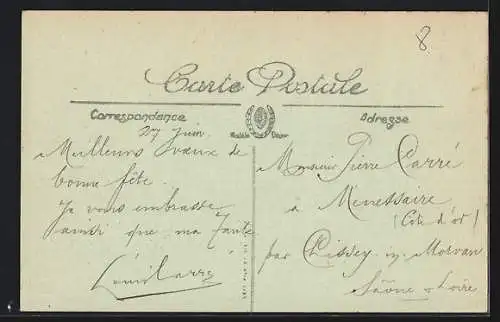 8
Carte Postale
Correspondance
Adresse
27 Juin.
Meilleurs Vœux de
bonne fête.
Je vous embrasse
ainsi que ma Tante
Carré
Monsieur Pierre Carré
à Menessaire
(Côte d'or)
par Chissey en Morvan
Saône & Loire